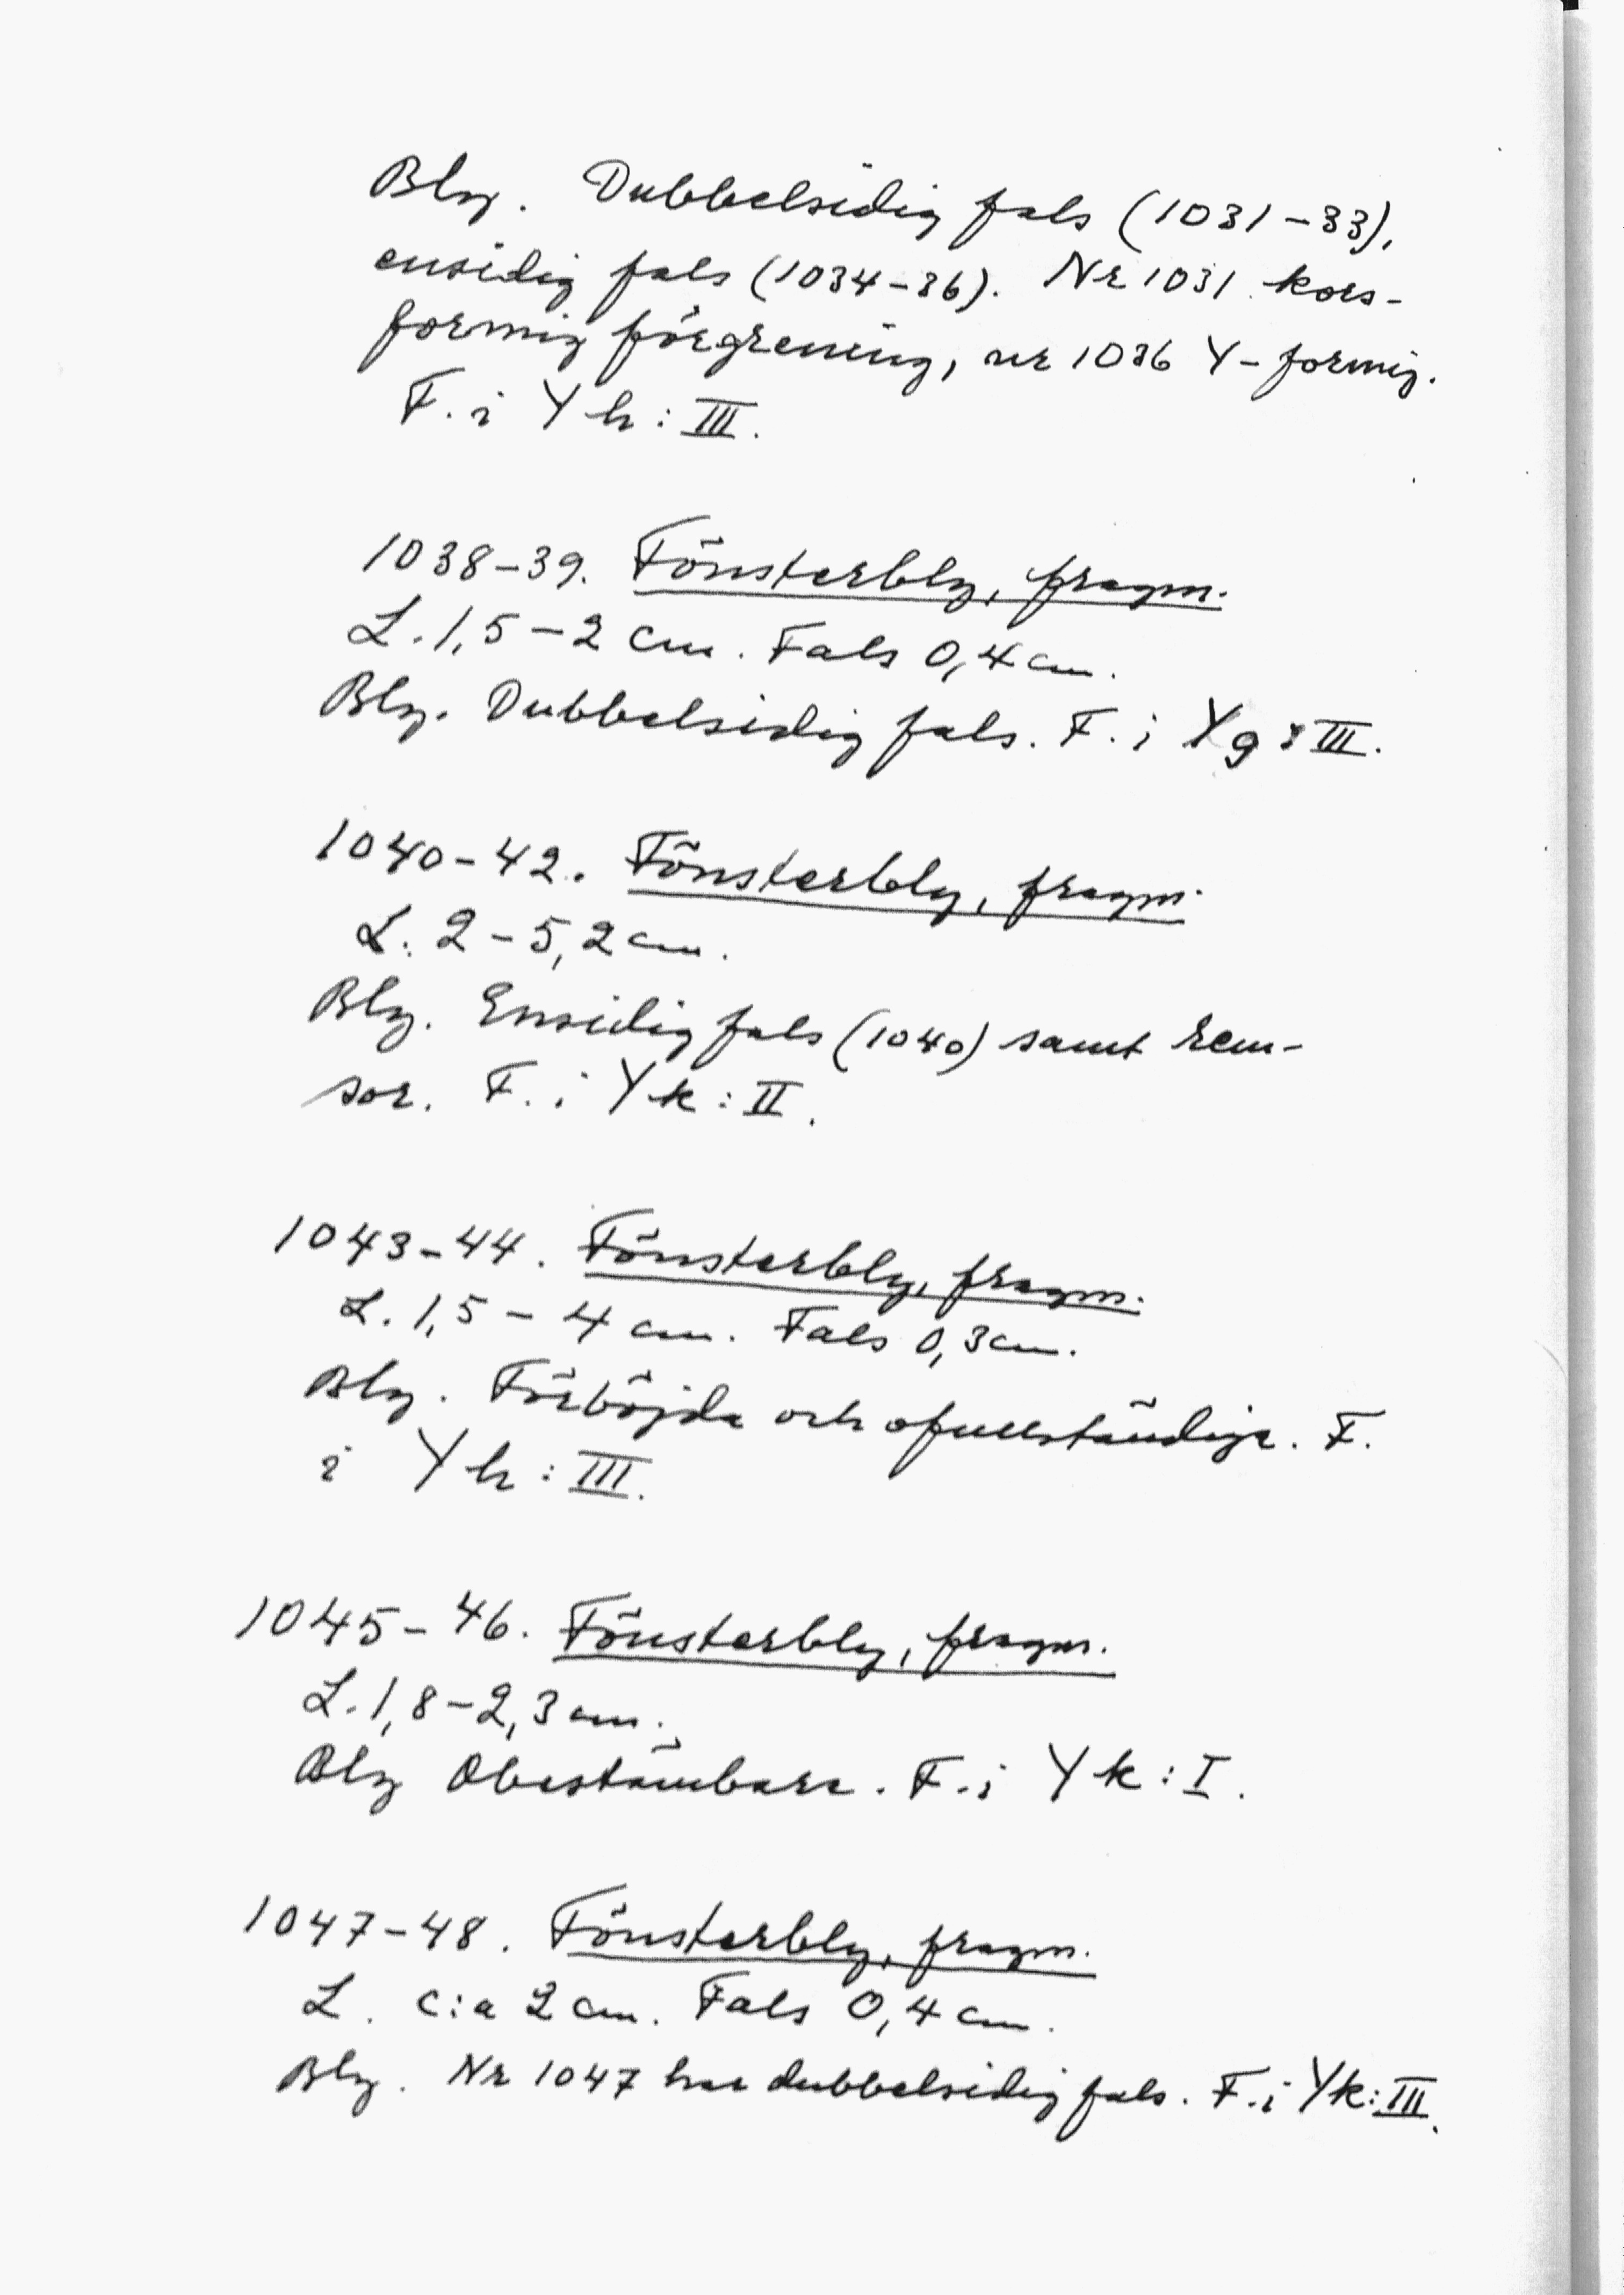 Bly. Dubbelsidig fals (1031-33),
ensidig fals (1034-36). Nr 1031 kors-
formig förgrening, nr 1036 Y-formig.
F. i Yh: III.
1038-39. Fönsterbly, fragm.
L. 1,5-2 cm. Fals 0,4 cm.
Bly. Dubbelsidig fals. F. i Yg: III.
1040-42. Fönsterbly, fragm.
L. 2-5,2 cm.
Bly. Ensidig fals (1040) samt rem-
sor. F. i Yk: II.
1043-44. Fönsterbly, fragm.
L. 1,5-4 cm. Fals 0,3 cm.
Bly. Förböjda och ofullständiga. F.
i Yh: III.
1045-46. Fönsterbly, fragm.
L. 1,8-2,3 cm.
Bly Obestämbara. F. i Yk: I.
1047-48. Fönsterbly, fragm.
L. c:a 2 cm. Fals 0,4 cm.
Bly. Nr 1047 har dubbelsidig fals. F. i Yk: III.